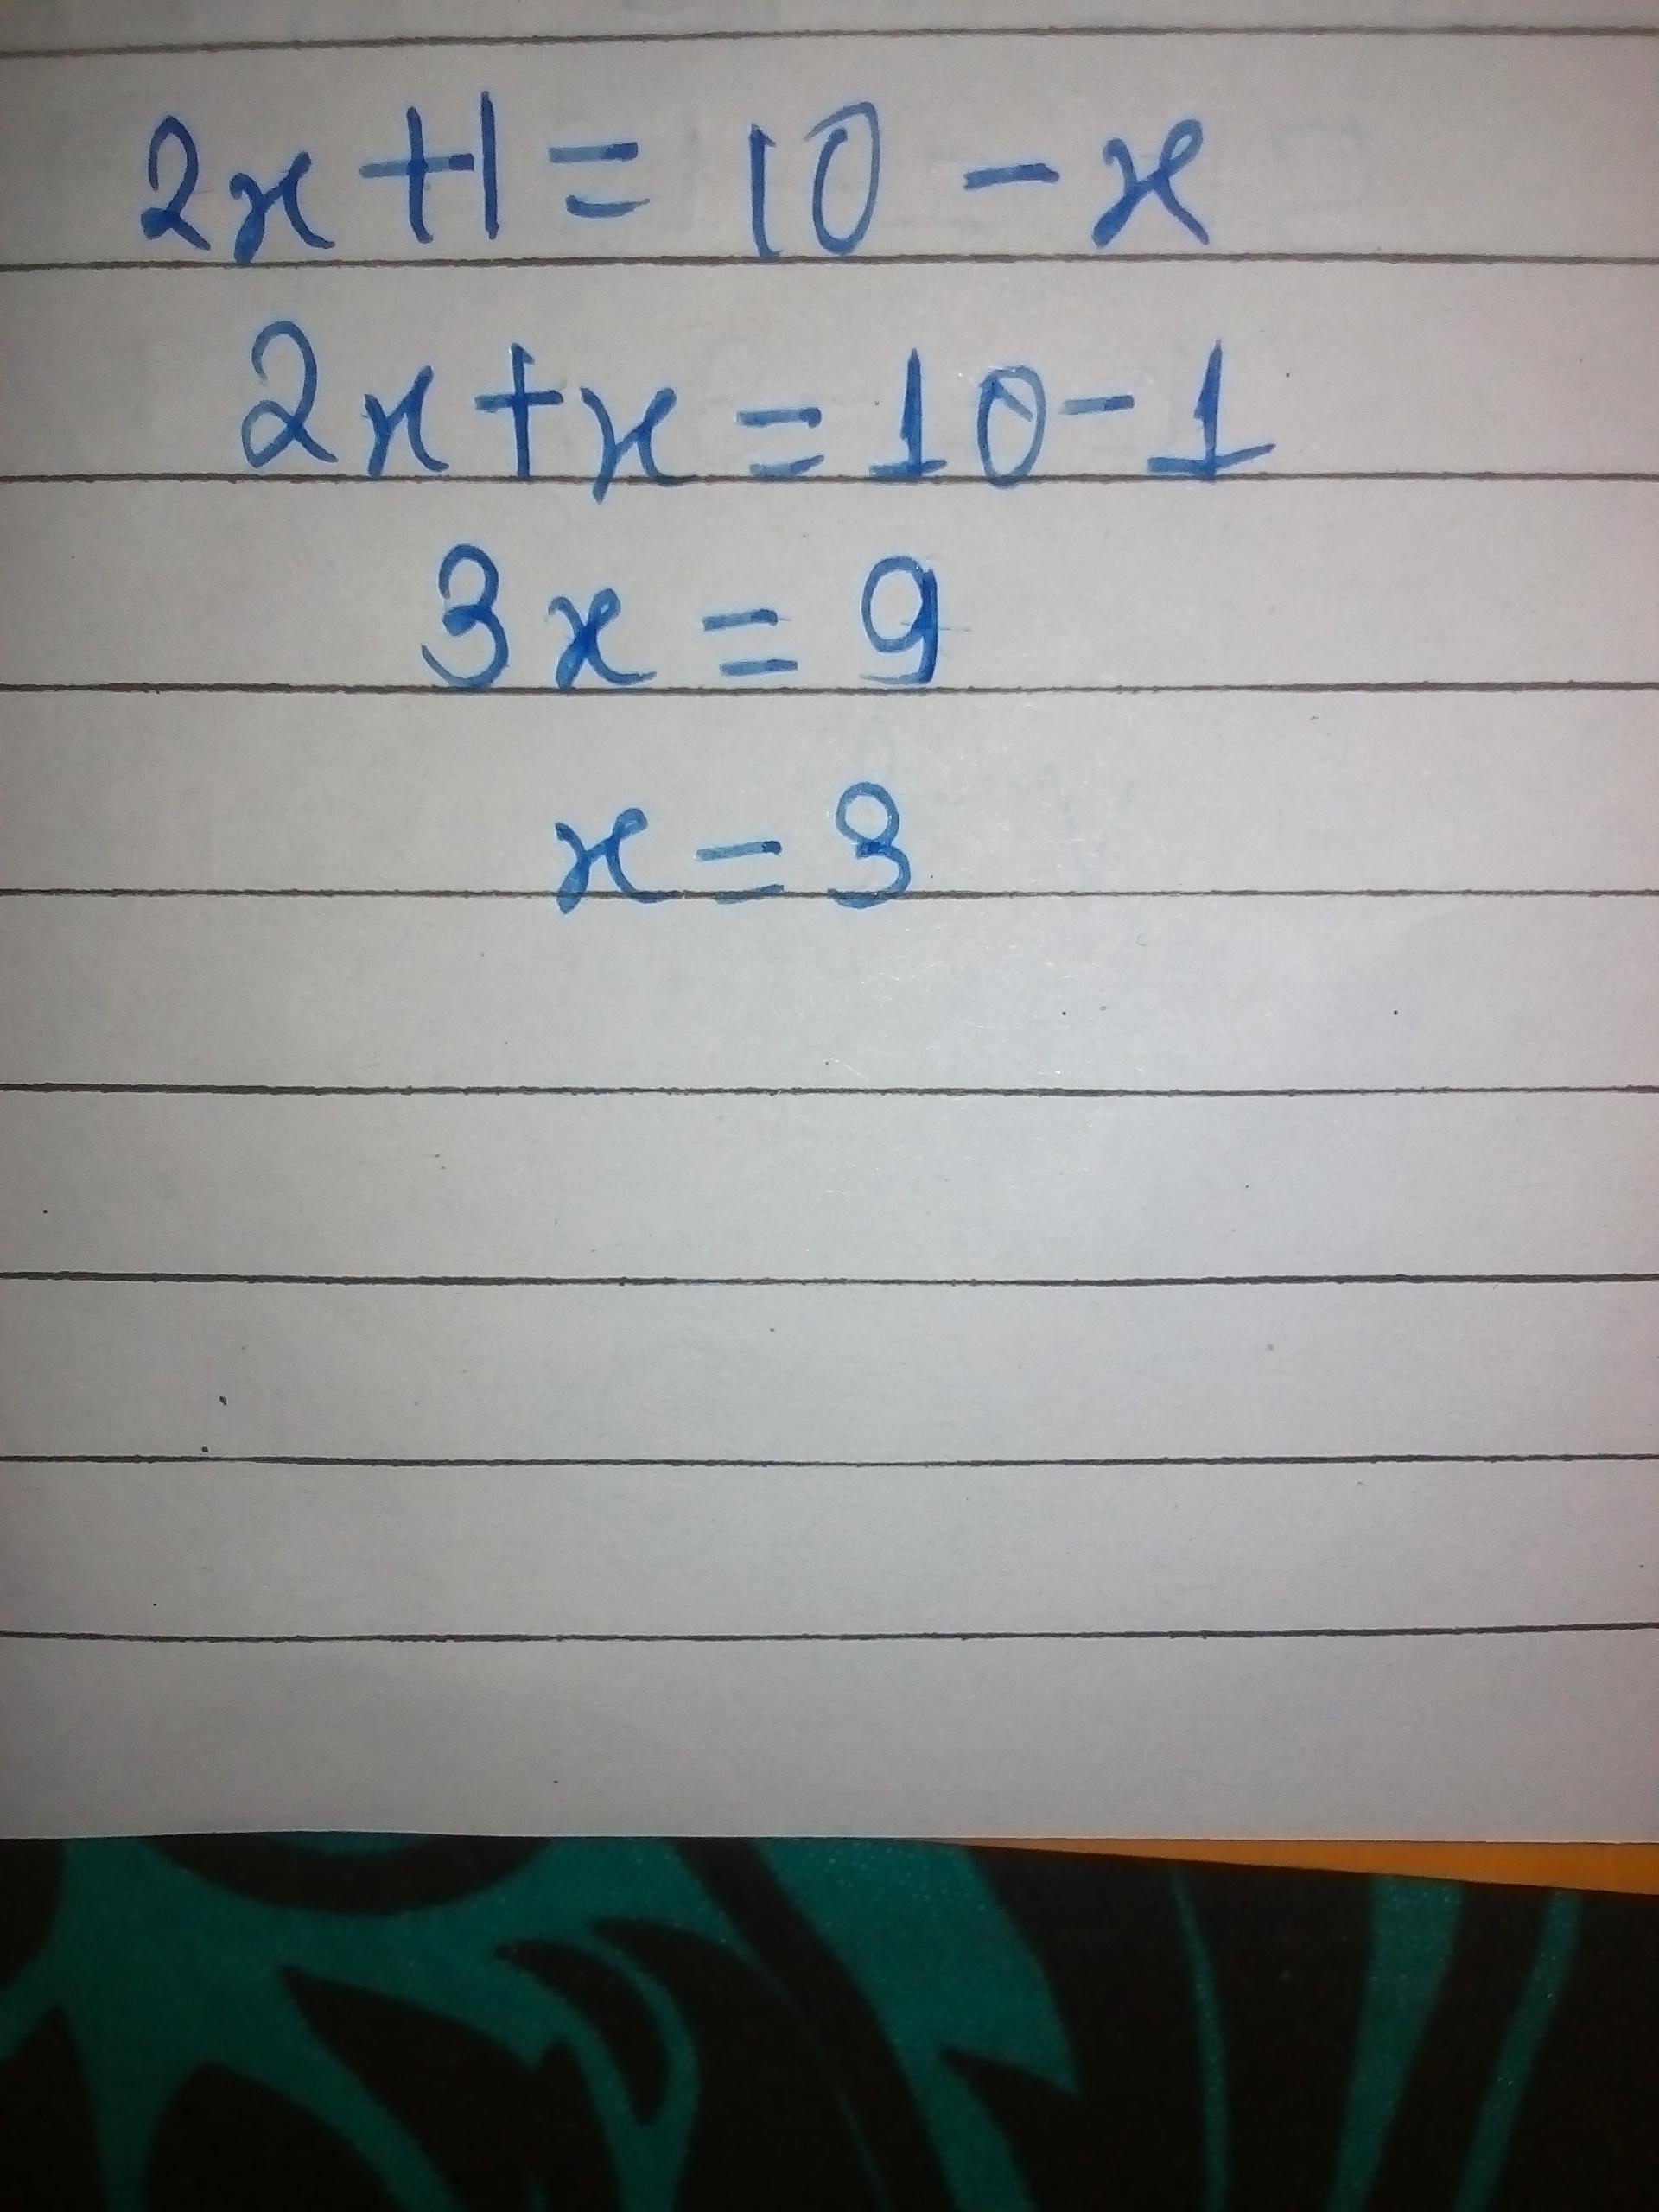 2x + 1 = 10 - x
2x + x = 10 - 1
3x = 9
x = 3